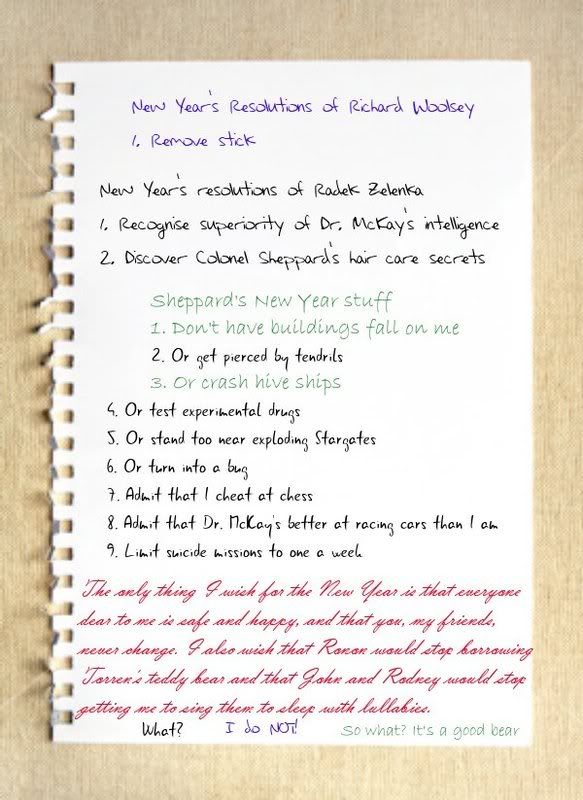 New Year's Resolutions of Richard Woolsey
1. Remove stick
New Year's resolutions of Radek Zelenka
1. Recognise superiority of Dr. McKay's intelligence
2. Discover Colonel Sheppard's hair care secrets
Sheppard's New Year stuff
1. Don't have buildings fall on me
2. Or get pierced by tendrils
3. Or crash hive ships
4. Or test experimental drugs
5. Or stand too near exploding Stargates
6. Or turn into a bug
7. Admit that I cheat at chess
8. Admit that Dr. McKay's better at racing cars than I am
9. Limit suicide missions to one a week
The only thing I wish for the New Year is that everyone
dear to me is safe and happy, and that you, my friends,
never change. I also wish that Ronon would stop borrowing
Torren's teddy bear and that John and Rodney would stop
getting me to sing them to sleep with lullabies.
What? I do NOT! So what? It's a good bear